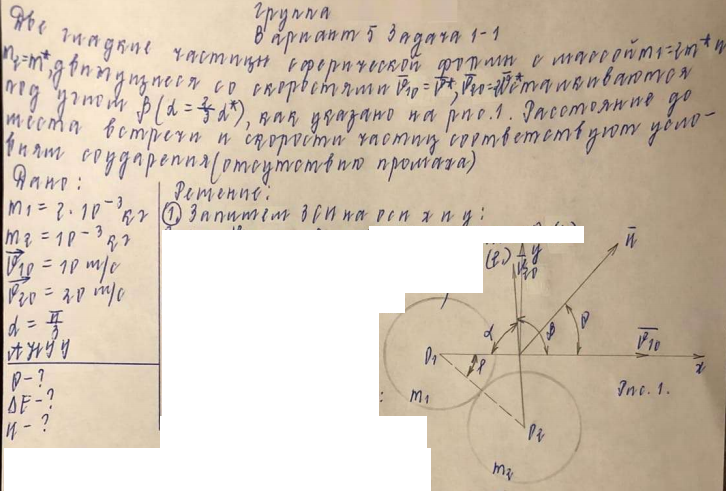 группа
Вариант 5 Задача 1-1
Две гладкие частицы сферической формы с массой m₁=2m* и
m₂=m*, движущиеся со скоростями v̅₁₀=v̅*, v̅₂₀=2v̅* сталкиваются
под углом β(α=2/3 α*), как указано на рис.1. Расстояние до
места встречи и скорости частиц соответствуют усло-
виям соударения (отсутствию промаха)
Дано:
m₁ = 2·10⁻³ кг
m₂ = 10⁻³ кг
v₁₀ = 10 м/с
v₂₀ = 20 м/с
α = π/3
АУНУУ
P-?
ΔE-?
н-?
Решение:
① Запишем ЗСИ на оси x и y:
(2)
y
v̅₂₀
н
α
β
v̅₁₀
x
m₁
m₂
Рис.1.